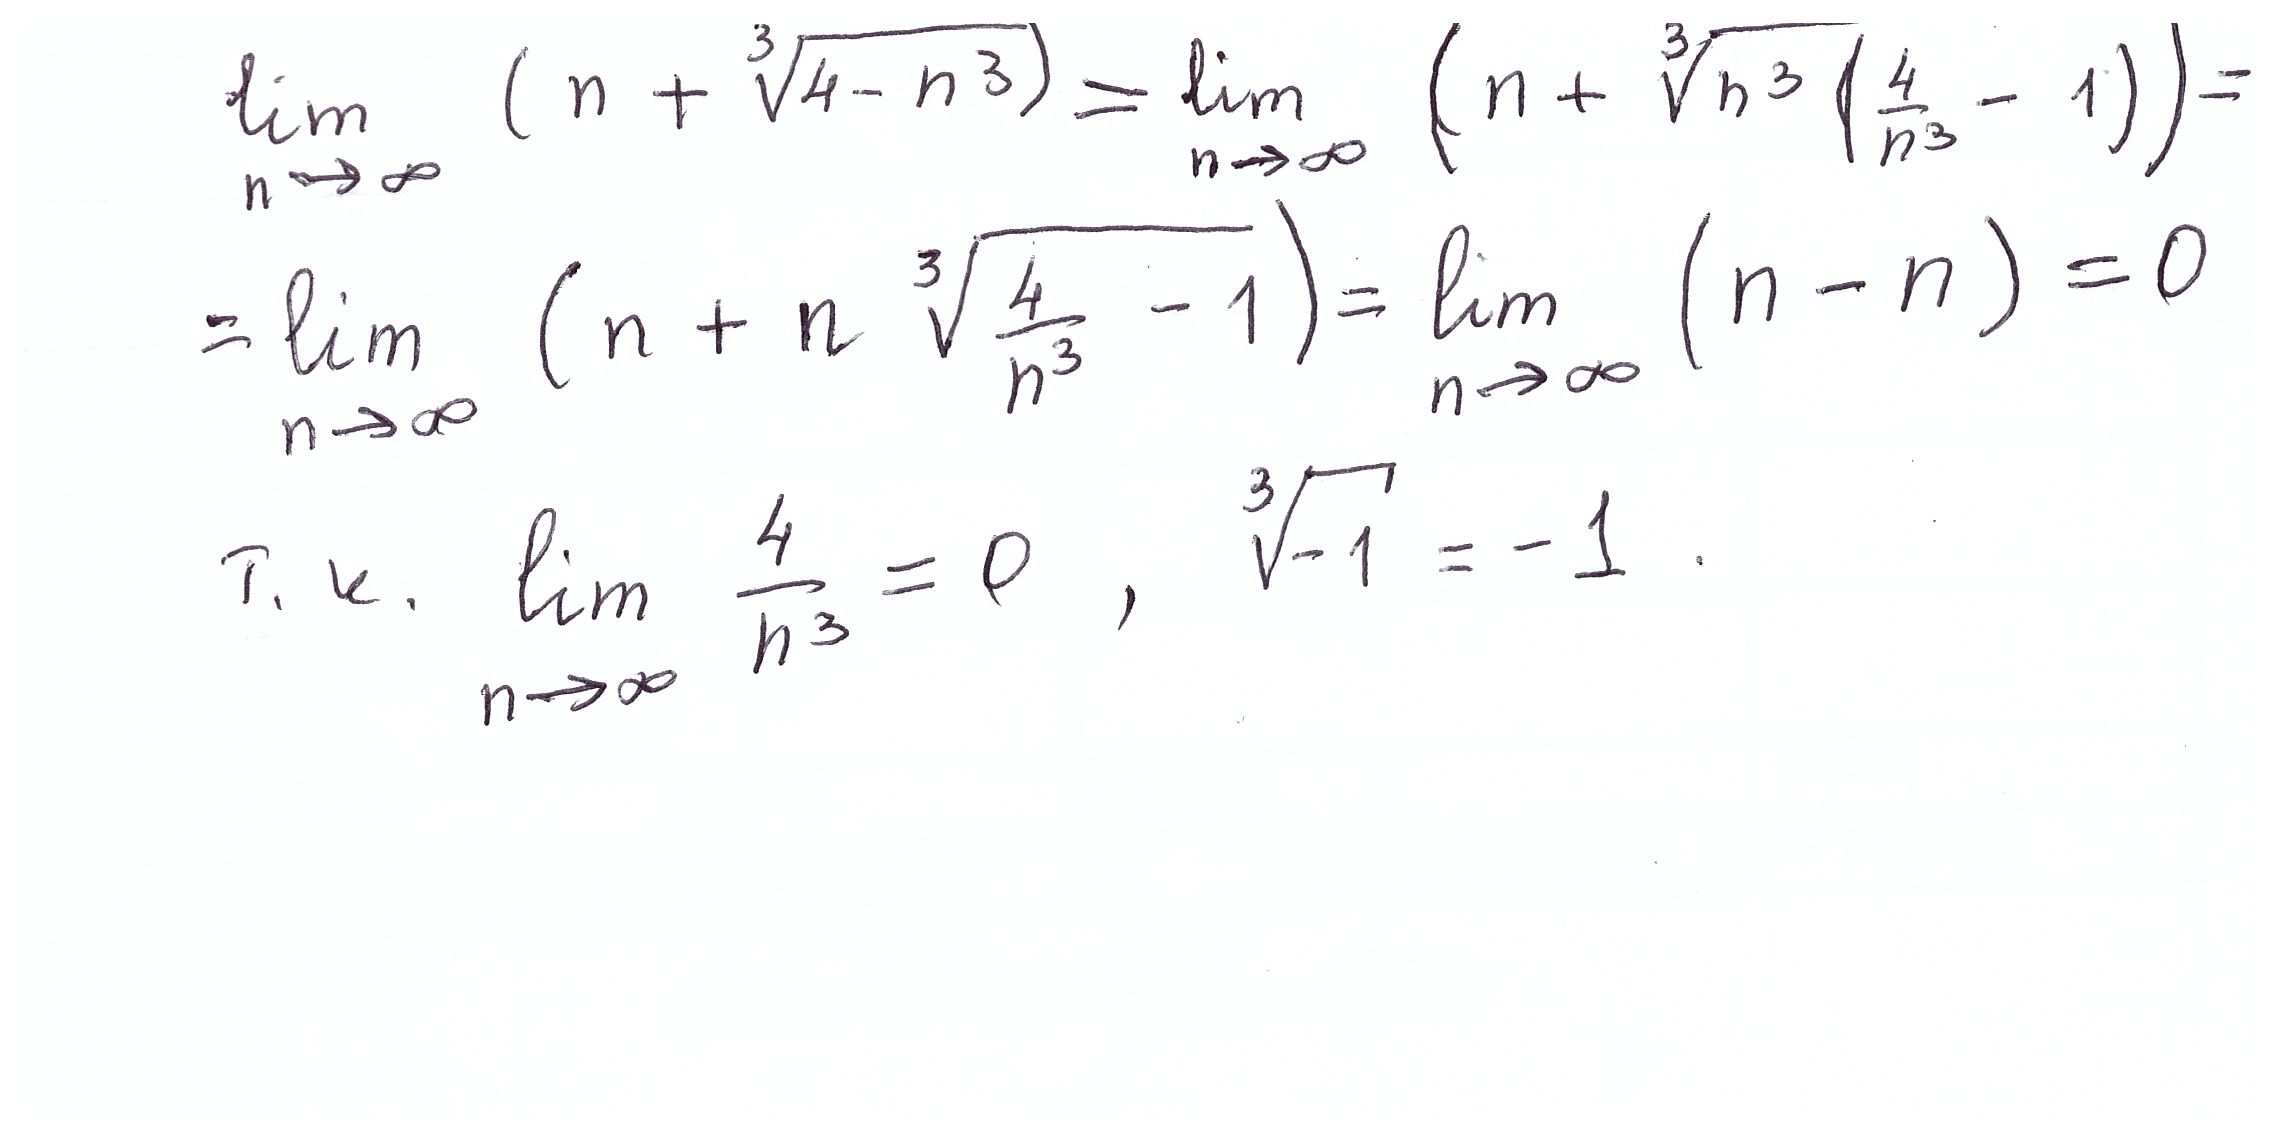 lim n→∞ (n + ∛(4 - n³)) = lim n→∞ (n + ∛(n³(4/n³ - 1))) =
= lim n→∞ (n + n ∛(4/n³ - 1)) = lim n→∞ (n - n) = 0
т. к. lim n→∞ 4/n³ = 0 , ∛-1 = -1 .